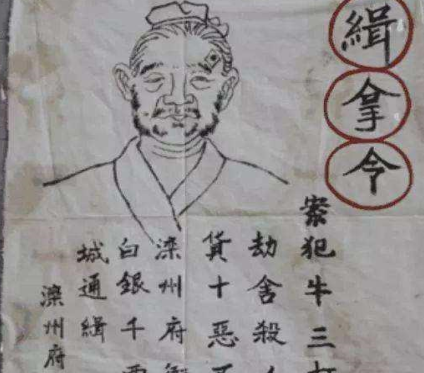 緝拿令
案犯牛三
劫舍殺
貨十惡
灤州府
白銀千
城通緝
灤州府